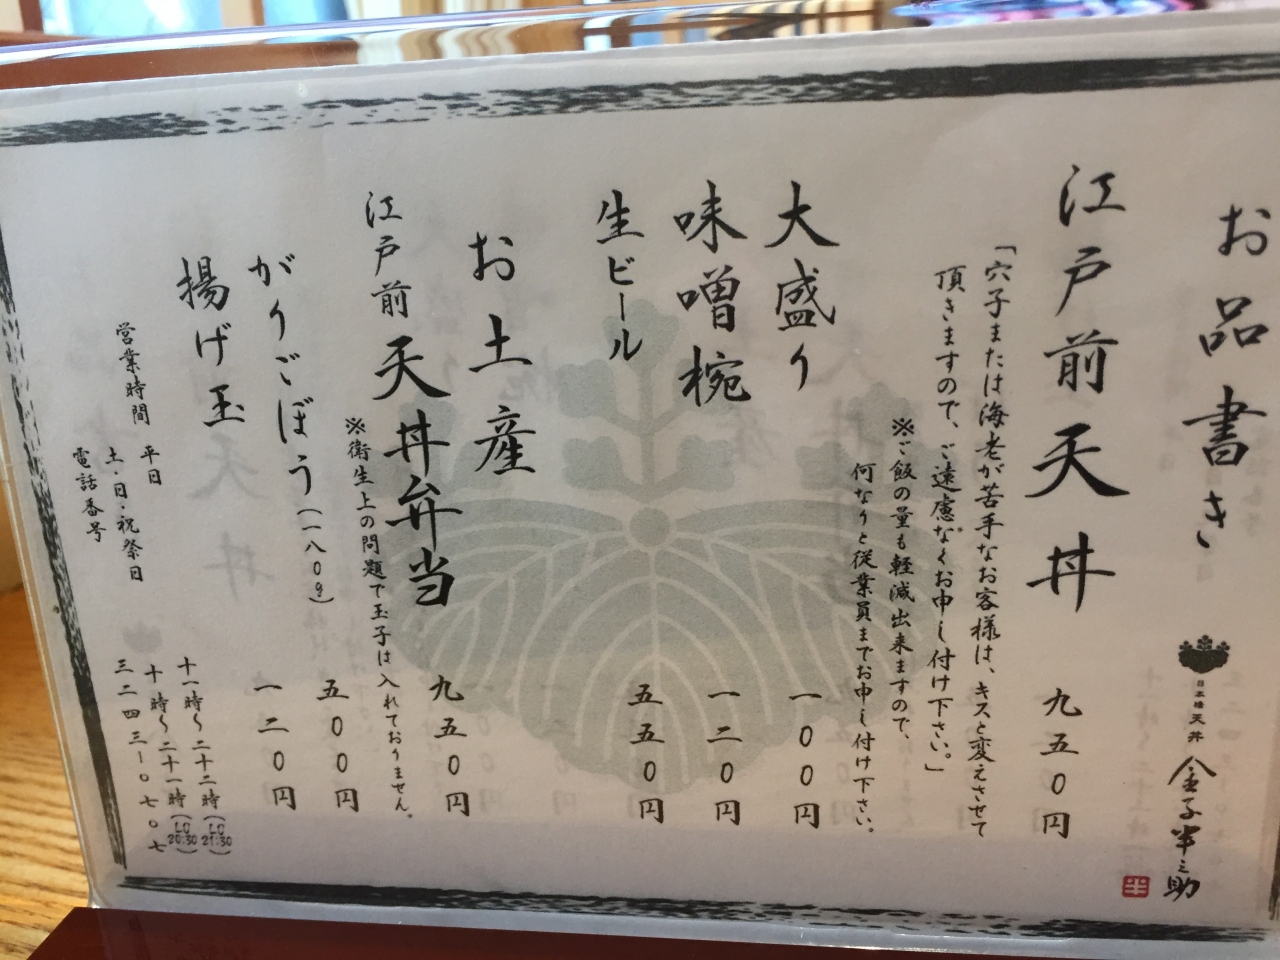 お品書き
日本橋 天丼 金子半之助
半
江戸前天丼 九五〇円
「穴子または海老が苦手なお客様は、キスと変えさせて
頂きますので、ご遠慮なくお申し付け下さい。」
※ご飯の量も軽減出来ますので、
何なりと従業員までお申し付け下さい。
大盛り 一〇〇円
味噌椀 一二〇円
生ビール 五五〇円
お土産
江戸前天丼弁当 九五〇円
※衛生上の問題で玉子は入れておりません。
がりごぼう(一八〇g) 五〇〇円
揚げ玉 一二〇円
営業時間 平日 十一時〜二十二時(LO 21:30)
土・日・祝祭日 十時〜二十一時(LO 20:30)
電話番号 三二四三-〇七〇七